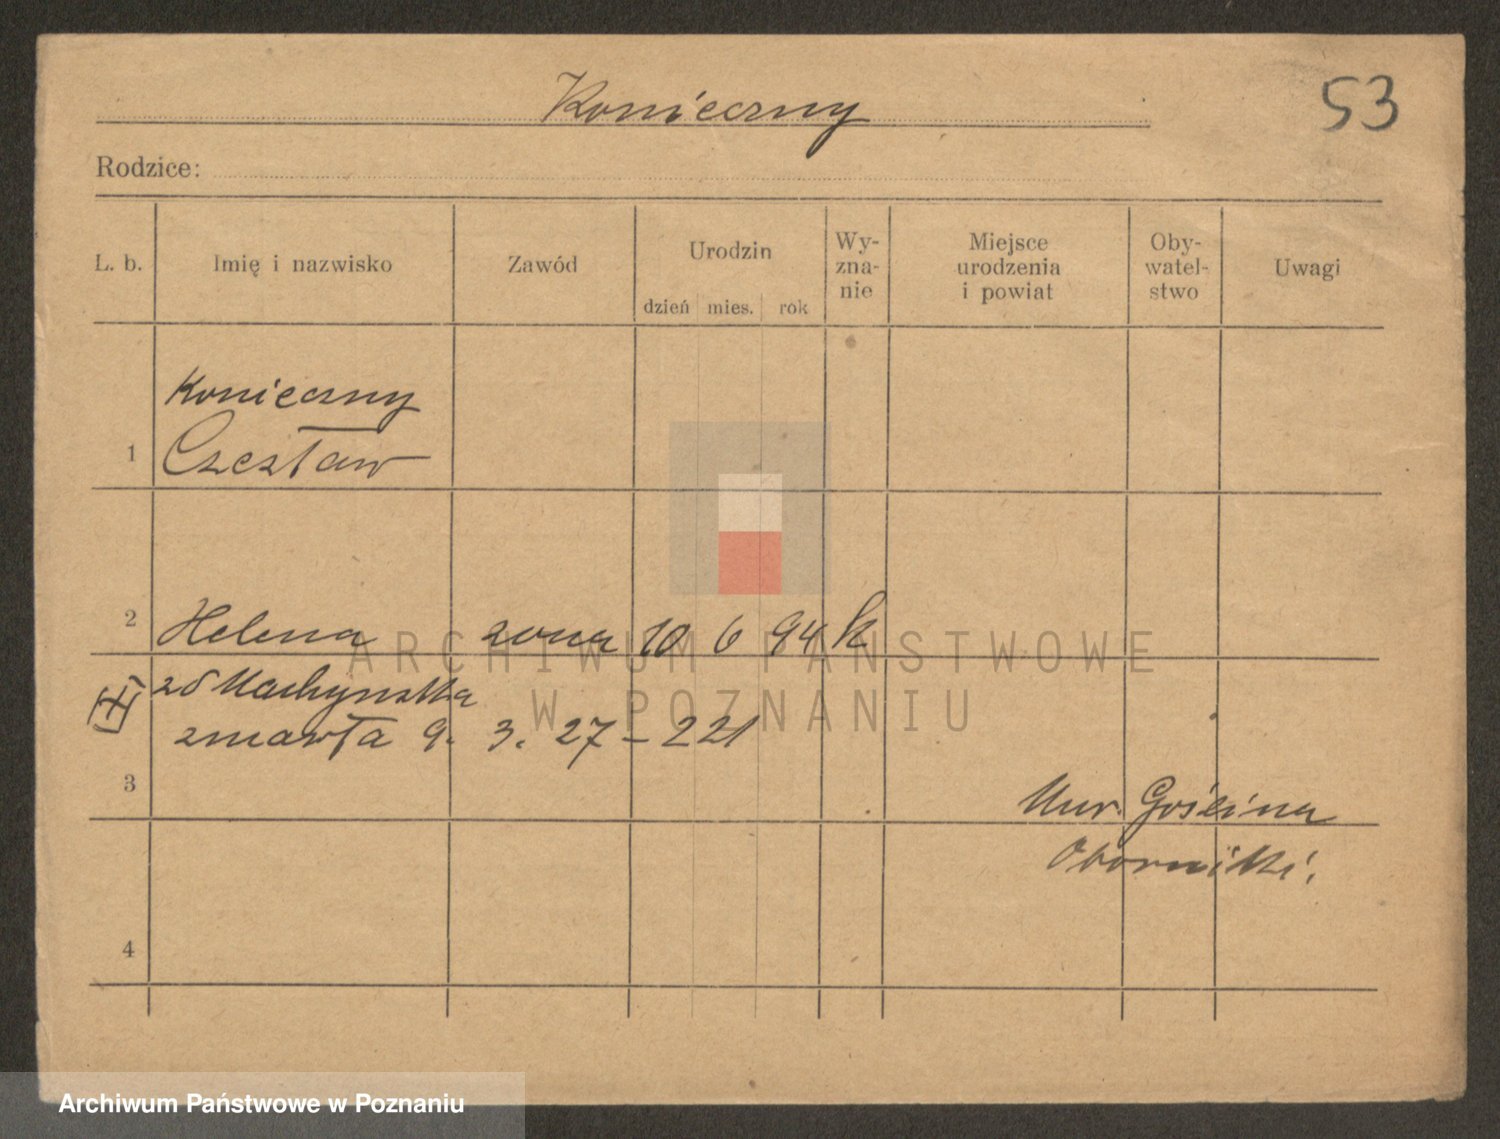 Konieczny
53
Rodzice:
L. b. Imię i nazwisko Zawód Urodzin dzień mies. rok Wy-zna-nie Miejsce urodzenia i powiat Oby-watel-stwo Uwagi
Konieczny
1 Czesław
2 Helena żona 10 6 94 k
zd Machyńska
zmarła 9. 3. 27 – 221
3
Mur. Goślina
Oborniki.
4
ARCHIWUM PAŃSTWOWE
W POZNANIU
Archiwum Państwowe w Poznaniu